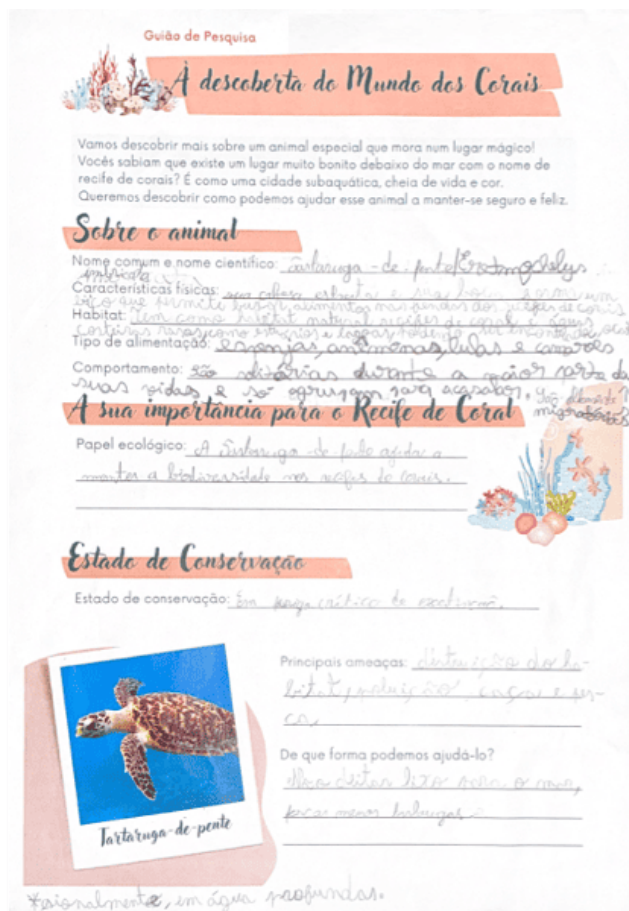 Guião de Pesquisa
À descoberta do Mundo dos Corais
Vamos descobrir mais sobre um animal especial que mora num lugar mágico!
Vocês sabiam que existe um lugar muito bonito debaixo do mar com o nome de
recife de corais? É como uma cidade subaquática, cheia de vida e cor.
Queremos descobrir como podemos ajudar esse animal a manter-se seguro e feliz.
Sobre o animal
Nome comum e nome científico: Tartaruga-de-pente/Eretmochelys
imbricata
Características físicas: sua cabeça estreita e sua forma um
bico que permite buscar alimentos nas fendas dos recifes de corais
Habitat: Tem como habitat natural recifes de corais e águas
costeiras rasas como estuários e lagoas, podendo ser encontradas, oca
Tipo de alimentação: esponjas, anêmonas, lulas e camarões
Comportamento: são solitárias durante a maior parte da
suas vidas e só agrupam para acasalar. São
migratórias
A sua importância para o Recife de Coral
Papel ecológico: A Tartaruga-de-pente ajuda a
manter a biodiversidade nos recifes de corais.
Estado de Conservação
Estado de conservação: Em perigo crítico de extinção.
Principais ameaças: distruição do ha-
bitat, poluição, caça e pes-
ca.
De que forma podemos ajudá-lo?
Não deitar lixo para o mar,
menos
Tartaruga-de-pente
*sionalmente, em água profundas.